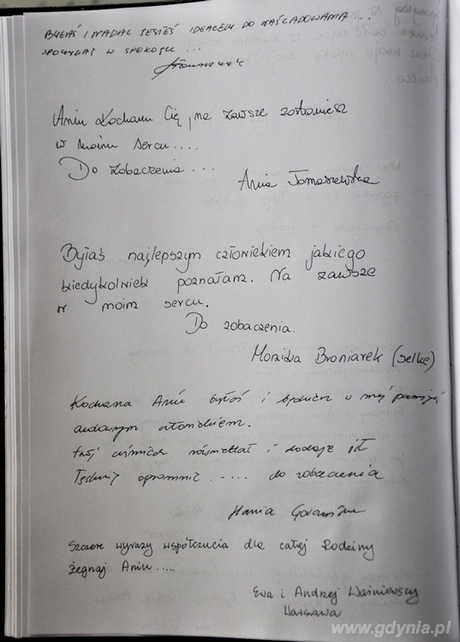 BYŁAŚ I NADAL JESTEŚ IDEAŁEM DO NAŚLADOWANIA ...
SPOCZYWAJ W SPOKOJU ...
Aniu Kocham Cię, na zawsze zostaniesz
w moim sercu....
Do zobaczenia...
Ania Tomaszewska
Byłaś najlepszym człowiekiem jakiego
kiedykolwiek poznałam. Na zawsze
w moim sercu.
Do zobaczenia.
Monika Broniarek (Selke)
Kochana Aniu byłaś i będziesz w mej pamięci
cudownym człowiekiem.
Twój uśmiech rozświetlał i dodaje sił
..... do zobaczenia
Hania
Szczere wyrazy współczucia dla całej Rodziny
Żegnaj Aniu.....
Ewa i Andrzej Waśniewscy
Warszawa
www.gdynia.pl